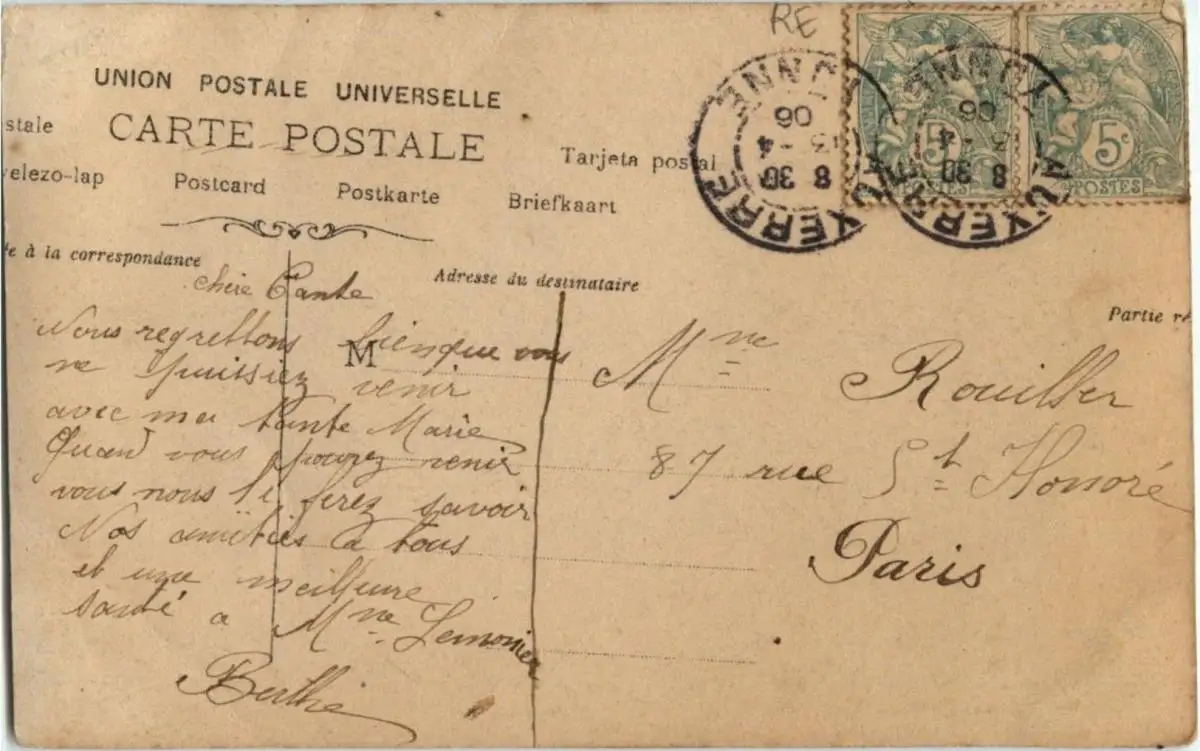 RE
UNION POSTALE UNIVERSELLE
CARTE POSTALE
stale
Tarjeta postal
velezo-lap Postcard Postkarte Briefkaart
e à la correspondance
Adresse du destinataire
Partie ré
5c
POSTES
5c
POSTES
AUXERRE
YONNE
8 30
13 - 4
06
AUXERRE
YONNE
8 30
13 - 4
06
chère Tante
Nous regrettons bien que vous
ne puissiez venir
avec ma tante Marie
Quand vous pourez venir
vous nous le ferez savoir
Nos amitiés a tous
et une meilleure
santé a Mme Lemonier
Berthe
M
Mme Rouiller
87 rue St Honoré
Paris